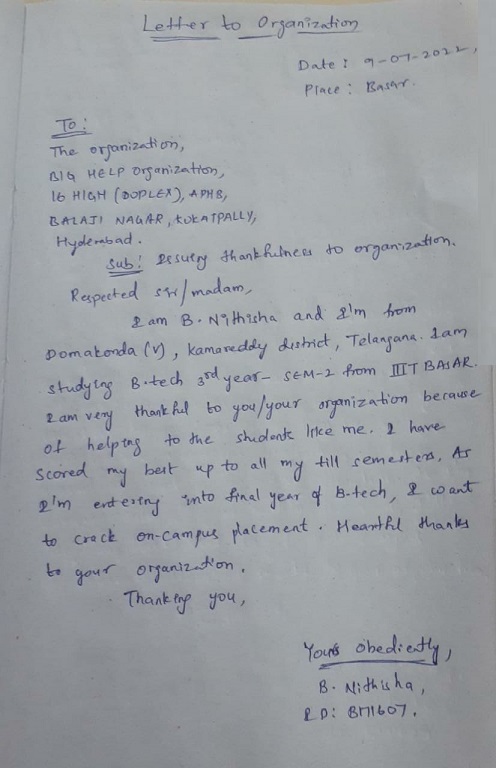 Letter to Organization
Date : 9-07-2022,
Place : Basar.
To :
The organization,
BIG HELP Organization,
16 HIGH (DUPLEX), APHB,
BALAJI NAGAR, KUKATPALLY,
Hyderabad.
Sub: Issuing thankfulness to organization.
Respected sir/madam,
I am B. Nithisha and I'm from
Domakonda (V), Kamareddy district, Telangana. I am
studying B.tech 3rd year - SEM-2 from IIIT BASAR.
I am very thankful to you/your organization because
of helping to the students like me. I have
scored my best up to all my till semesters. As
I'm entering into final year of B-tech, I want
to crack on-campus placement. Heartful thanks
to your organization.
Thanking you,
Yours obediently,
B. Nithisha,
ID: B171607.